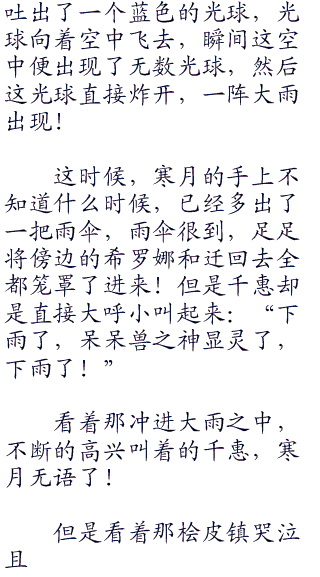 吐出了一个蓝色的光球，光
球向着空中飞去，瞬间这空
中便出现了无数光球，然后
这光球直接炸开，一阵大雨
出现！
这时候，寒月的手上不
知道什么时候，已经多出了
一把雨伞，雨伞很到，足足
将傍边的希罗娜和迁回去全
都笼罩了进来！但是千惠却
是直接大呼小叫起来：“下
雨了，呆呆兽之神显灵了，
下雨了！”
看着那冲进大雨之中，
不断的高兴叫着的千惠，寒
月无语了！
但是看着那桧皮镇哭泣
且